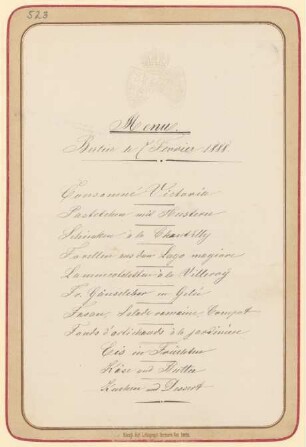 523
Menu.
Berlin le 7 Fevrier 1888.
Consommé Victoria
Pastetchen mit Austern
Schinken à la Chantilly
Forellen aus dem Lago magiore
Lammcoteletten à la Villeroy
Gänseleber in Gelée
Fasan, Salade romaine, Compot
Fonds d'artichauts à la jardinière
Eis in Früchten
Käse und Butter
Kuchen und Dessert